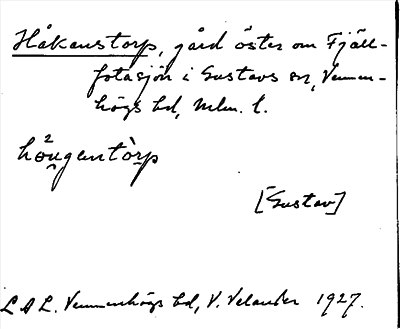 Håkanstorp, gård öster om Fjäll-
fotasjön i Gustavs sn, Vemmen-
högs hd, Mlm. l.
hö²u̯gantòrp
[Gustav]
L A L. Vemmenhögs hd, V. Velander 1927.